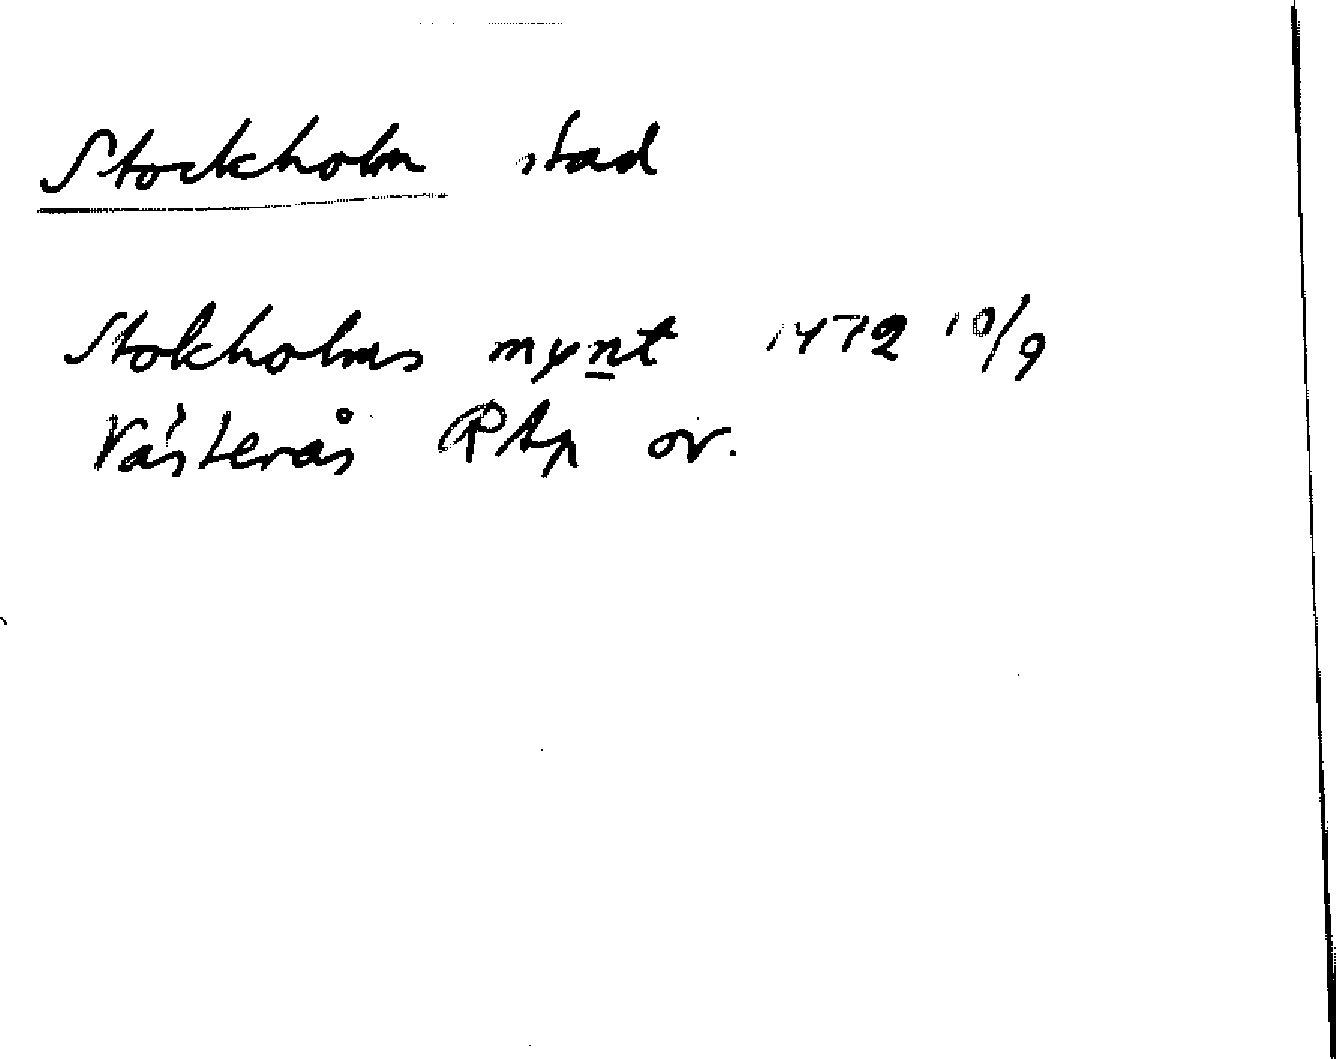 Stockholm stad
Stokholms mynt 1472 10/9
Västerås RAp or.